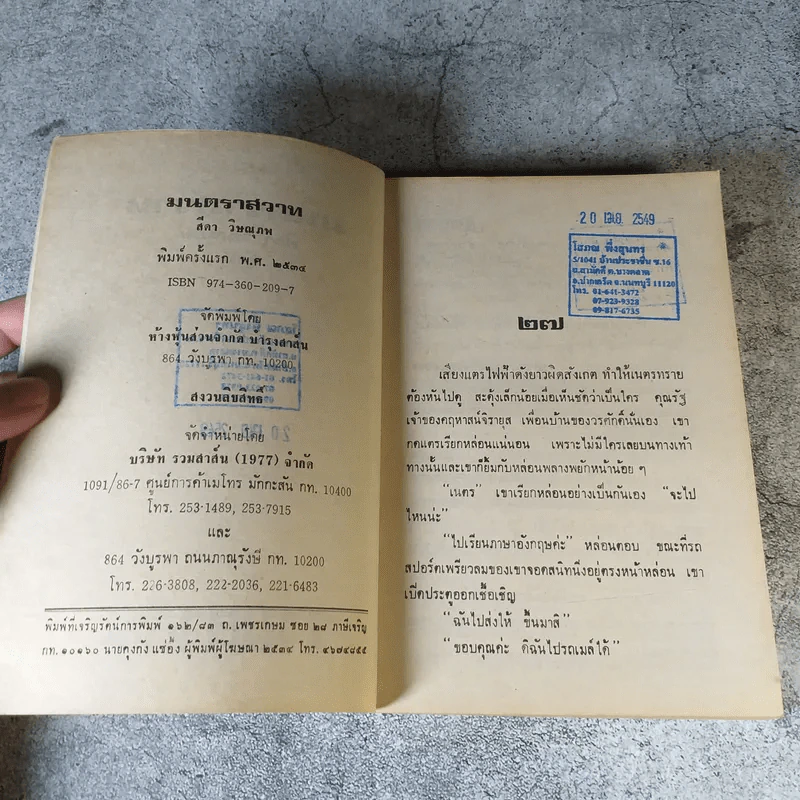 มนตราสวาท
สีดา วิษณุภพ
พิมพ์ครั้งแรก พ.ศ. ๒๕๓๔
ISBN 974-360-209-7
จัดพิมพ์โดย
ห้างหุ้นส่วนจำกัด บำรุงสาส์น
864 วังบูรพา กท. 10200
สงวนลิขสิทธิ์
จัดจำหน่ายโดย
บริษัท รวมสาส์น (1977) จำกัด
1091/86-7 ศูนย์การค้าเมโทร มักกะสัน กท. 10400
โทร. 253-1489, 253-7915
และ
864 วังบูรพา ถนนภาณุรังษี กท. 10200
โทร. 226-3808, 222-2036, 221-6483
พิมพ์ที่เจริญรัตน์การพิมพ์ ๑๖๒/๘๓ ถ. เพชรเกษม ซอย ๒๘ ภาษีเจริญ
กท. ๑๐๑๖๐ นายคุงกัง แซ่อึ้ง ผู้พิมพ์ผู้โฆษณา ๒๕๓๔ โทร. ๔๖๗๔๘๕๕
20 เมย 2549
โสภณ พึ่งสุนทร
5/1041 บ้านประชาชื่น ซ.16
ถ.สามัคคี ต.บางตลาด
อ.ปากเกร็ด จ.นนทบุรี 11120
โทร. 01-641-3472
07-923-9328
09-817-6735
๒๗
เสียงแตรไฟฟ้าดังยาวผิดสังเกต ทำให้เนตรทราย
ต้องหันไปดู สะดุ้งเล็กน้อยเมื่อเห็นชัดว่าเป็นใคร คุณรัฐ
เจ้าของคฤหาสน์จิรายุส เพื่อนบ้านของวรศักดิ์นั่นเอง เขา
กดแตรเรียกหล่อนแน่นอน เพราะไม่มีใครเลยบนทางเท้า
ทางนั้นและเขาก็ยิ้มกับหล่อนพลางพยักหน้าน้อย ๆ
“เนตร” เขาเรียกหล่อนอย่างเป็นกันเอง “จะไป
ไหนน่ะ”
“ไปเรียนภาษาอังกฤษค่ะ” หล่อนตอบ ขณะที่รถ
สปอร์ตเพรียวลมของเขาจอดสนิทนิ่งอยู่ตรงหน้าหล่อน เขา
เปิดประตูออกเชื้อเชิญ
“ฉันไปส่งให้ ขึ้นมาสิ”
“ขอบคุณค่ะ ดิฉันไปรถเมล์ได้”